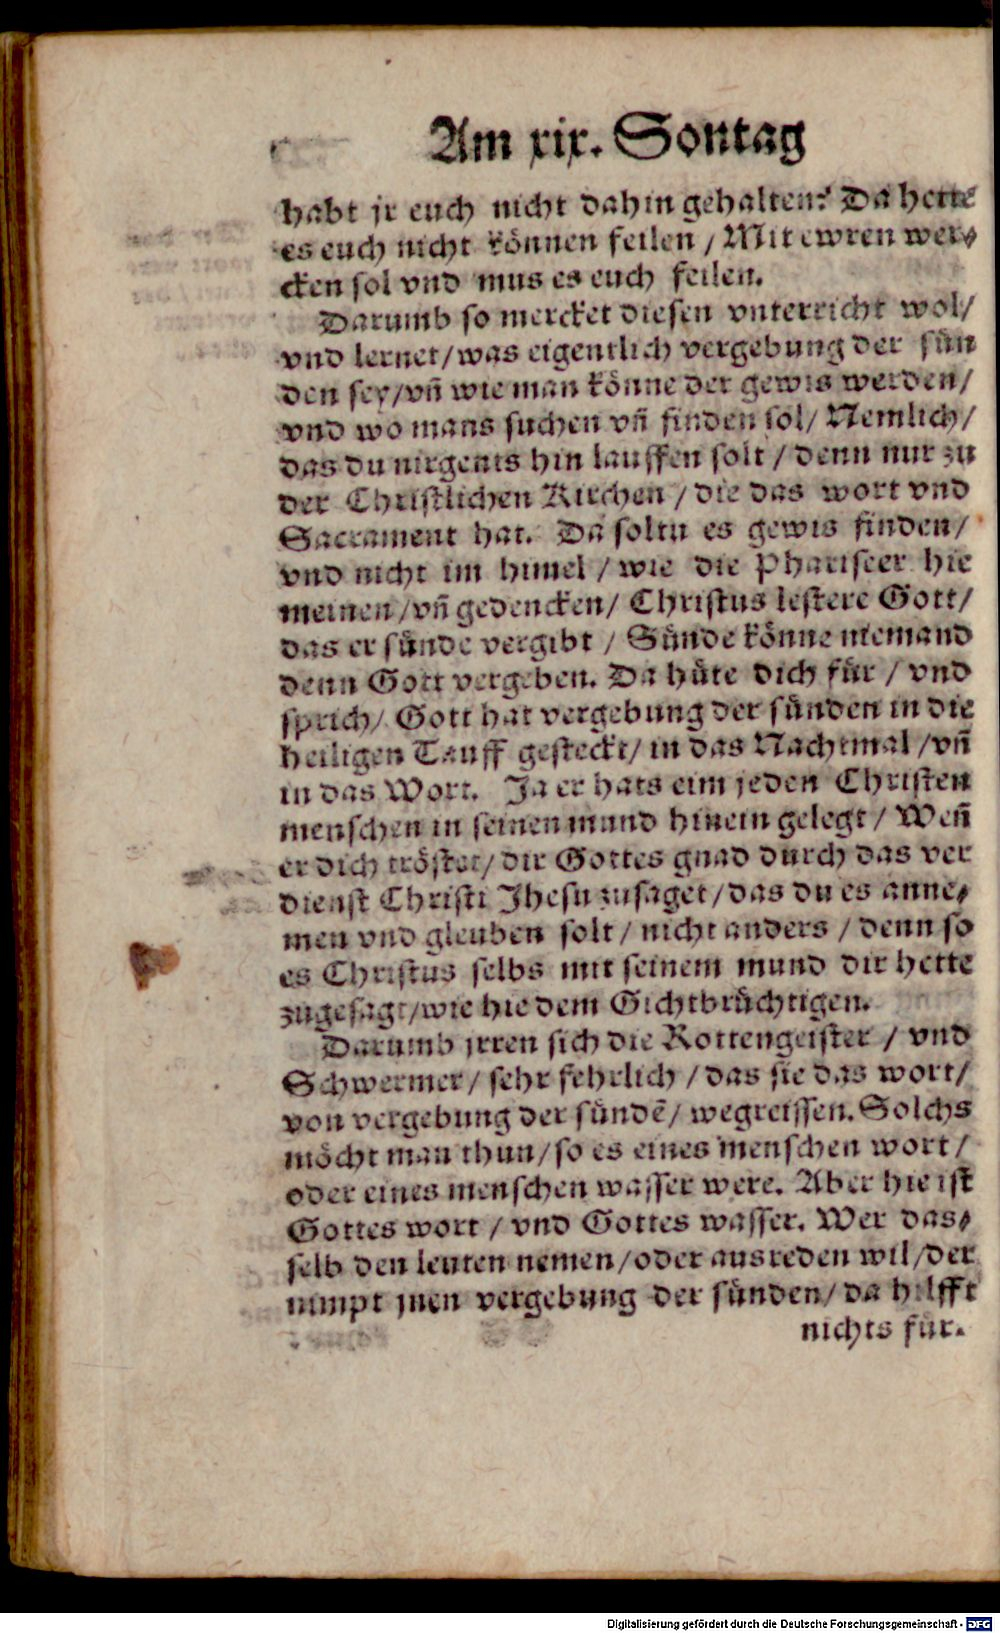 Am xix. Sontag
habt jr euch nicht dahin gehalten? Da hette
es euch nicht können feilen / Mit ewren wer⸗
cken sol vnd mus es euch feilen.
Darumb so mercket diesen vnterricht wol/
vnd lernet/was eigentlich vergebung der sün
den sey/vñ wie man könne der gewis werden/
vnd wo mans suchen vñ finden sol/ Nemlich/
das du nirgents hin lauffen solt / denn nur zu
der Christlichen Kirchen / die das wort vnd
Sacrament hat. Da soltu es gewis finden/
vnd nicht im himel / wie die Phariseer hie
meinen/vñ gedencken/ Christus lestere Gott/
das er sünde vergibt / Sünde könne niemand
denn Gott vergeben. Da hüte dich für / vnd
sprich/ Gott hat vergebung der sünden in die
heiligen Tauff gesteckt/ in das Nachtmal /vñ
in das Wort. Ja er hats eim jeden Christen
menschen in seinen mund hinein gelegt / Weñ
er dich tröstet/ dir Gottes gnad durch das ver
dienst Christi Jhesu zusaget/das du es anne⸗
men vnd gleuben solt / nicht anders / denn so
es Christus selbs mit seinem mund dir hette
zugesagt/wie hie dem Gichtbrüchtigen.
Darumb jrren sich die Rottengeister / vnd
Schwermer/ sehr fehrlich /das sie das wort/
von vergebung der sündẽ/ wegreissen. Solchs
möcht man thun/so es eines menschen wort /
oder eines menschen wasser were. Aber hie ist
Gottes wort / vnd Gottes wasser. Wer das⸗
selb den leuten nemen/oder ausreden wil/der
nimpt jnen vergebung der sünden/ da hilfft
nichts für.
Digitalisierung gefördert durch die Deutsche Forschungsgemeinschaft - DFG